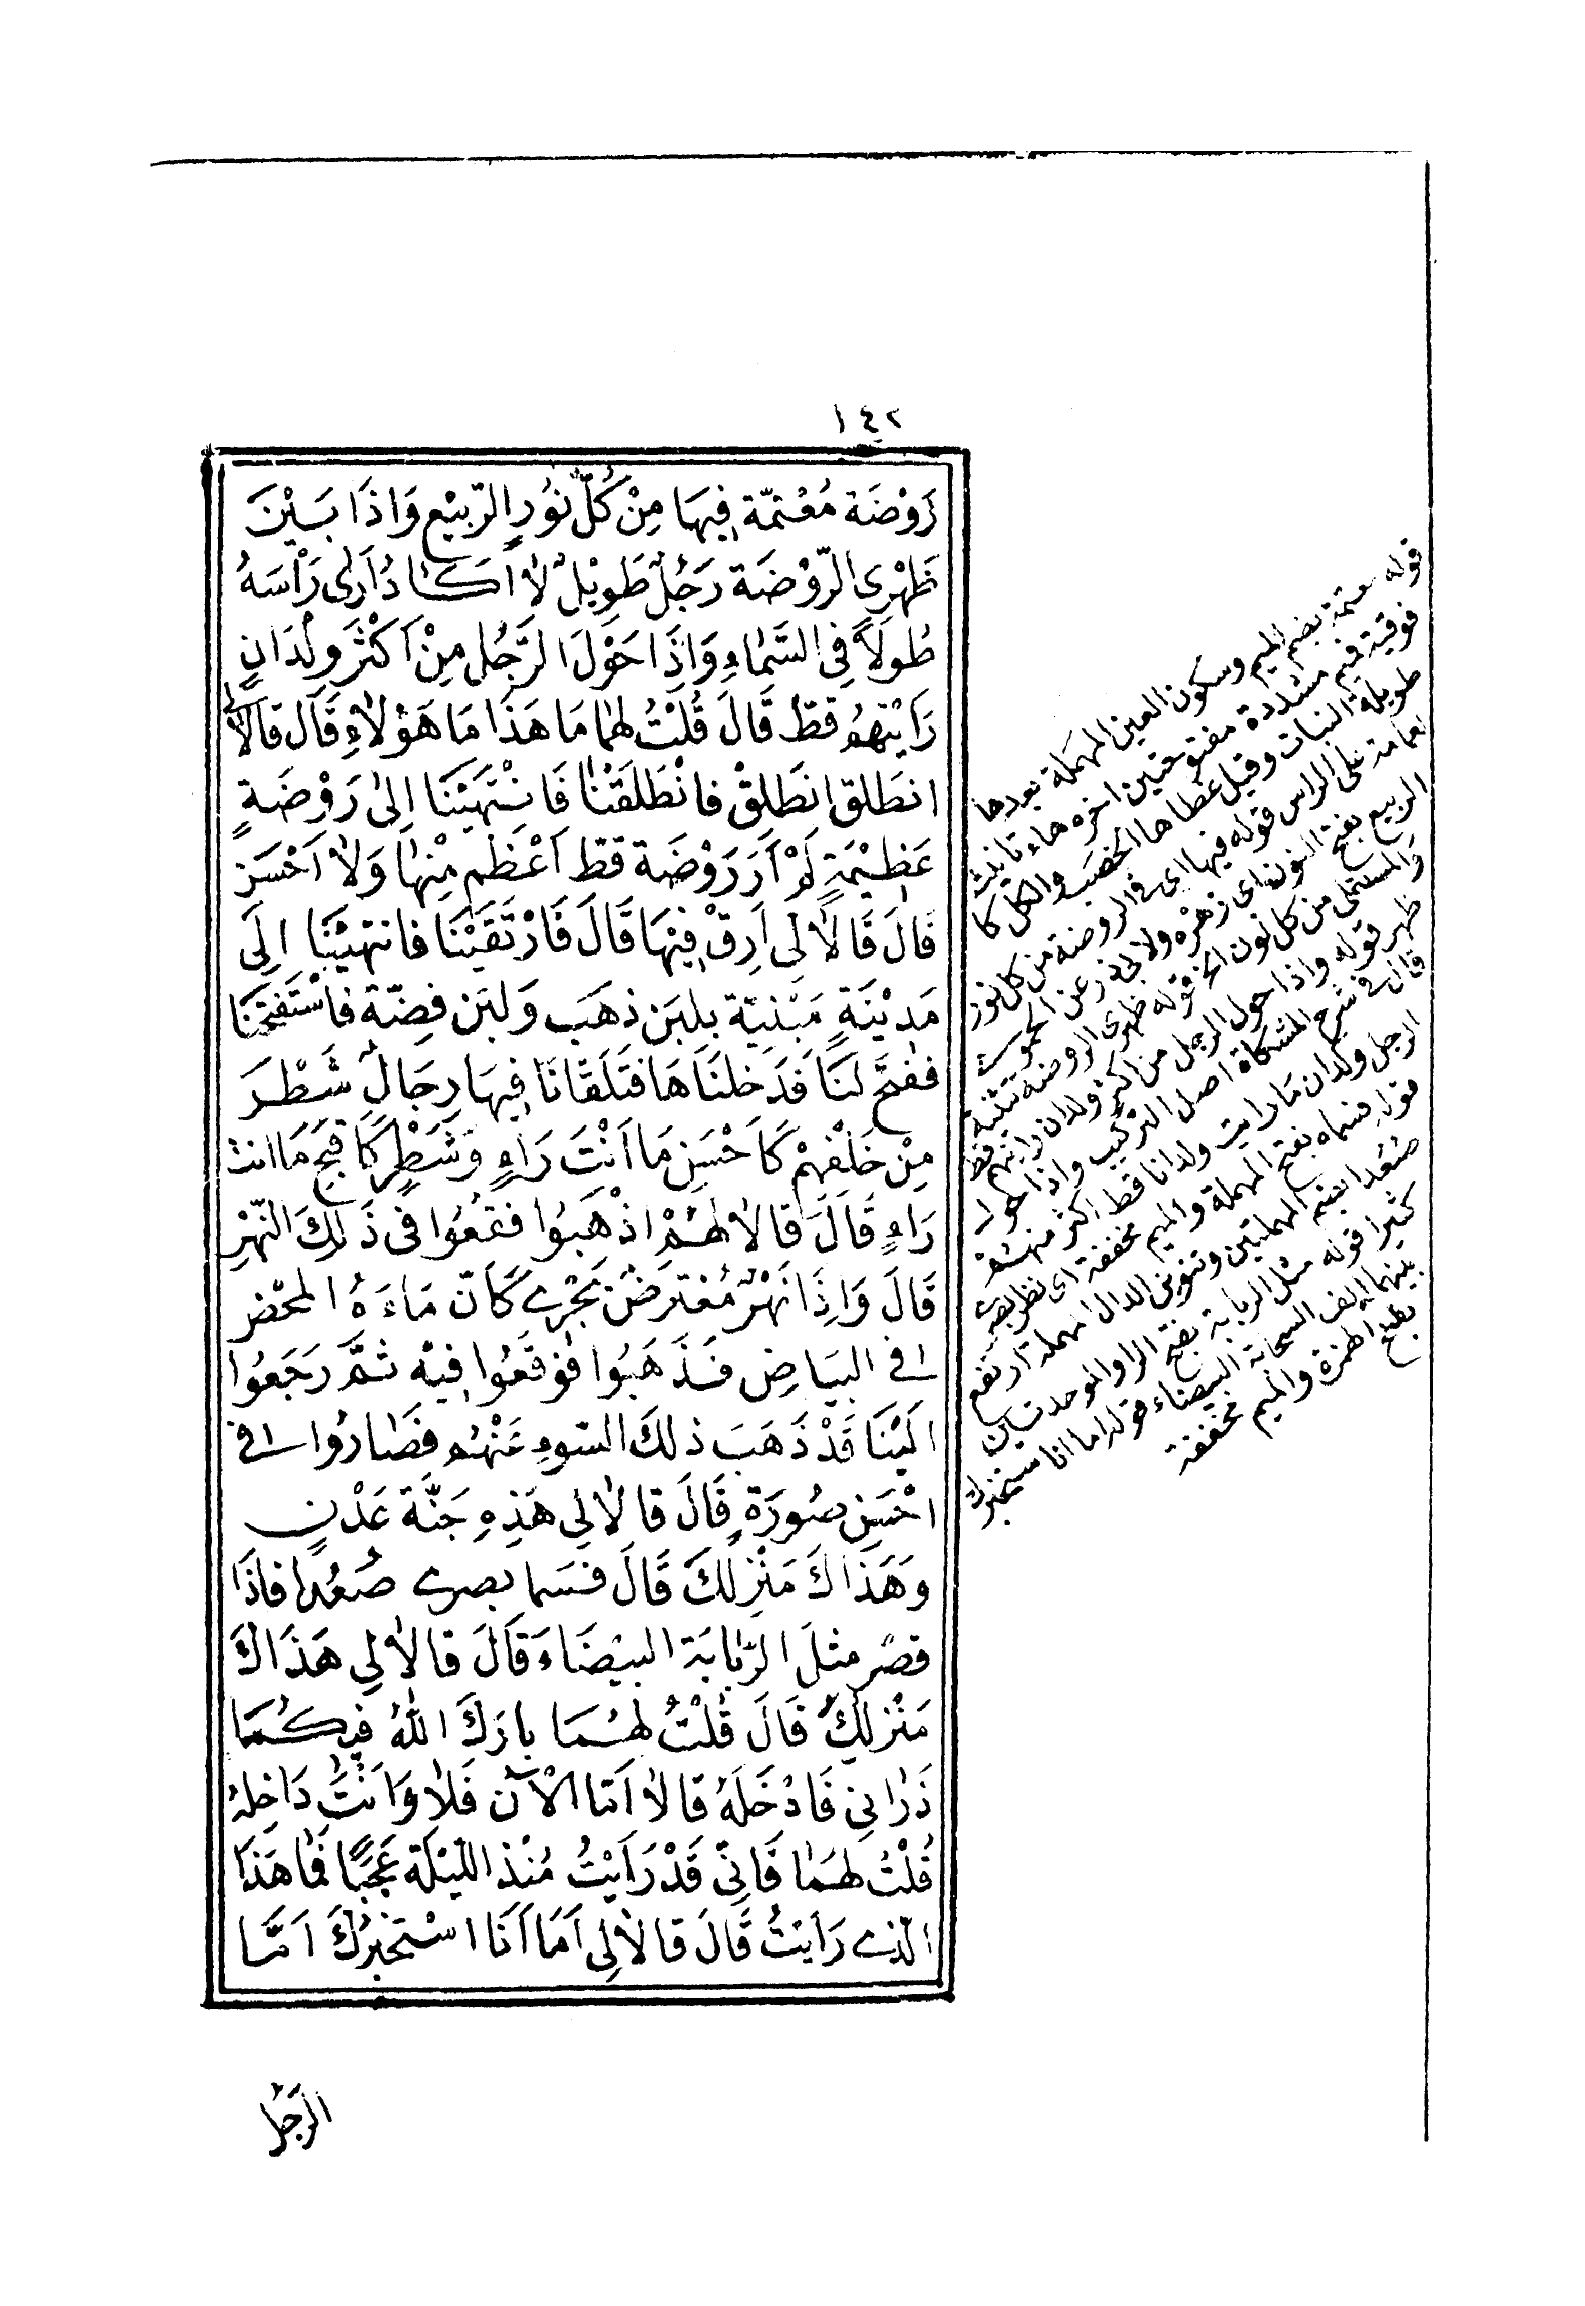 ١٤٢
رَوْضَة مُعْتمّة فِيهَا مِنْ كُلِّ نوُرِ الرّبيْعِ وَاذَا بَيْنَ
ظَهْرِى الرّوْضَة رَجُلٌ طَوِيْلٌ لَا اَكادُ اَرٰى رَاْسَهُ
طُولاً فِى السَّمَاءِ وَاِذَا حَوْلَ الرَّجُلِ مِنْ اَكْثَرِ وِلْدَانٍ
رَاَيْتهُمُ قطّ قَالَ قُلْتُ لهما مَا هَذَا مَا هَؤُلَاءِ قَالَ قالَا لى
انطَلق انطَلِقْ فانْطَلَقْنَا فَانْتَهَيْنَا اِلىٰ رَوْضَةٍ
عَظِيْمَةٍ لَمْ اَرَ رَوْضَة قطّ اَعْظَم مِنْهَا وَلَا اَحْسَن
قَالَ قَالَا لى اَرِقْ فِيهَا قَالَ فَارْتَقَيْنَا فانتهيْنَا اِلَى
مَدِيْنَةٍ مَبْنِيّة بِلبَن ذهَب وَلبَن فِضّة فاسْتَفتحْنَا
ففتحَ لنَا فَدَخلنَاهَا فتَلَقانَا فِيهَا رِجَالٌ شَطْرَ
مِنْ خَلْقهمْ كَاَحْسَنِ مَا اَنْتَ رَاءٍ وَشَطْرٍ كَاقبَحِ مَا انت
رَاءٍ قَالَ قالَا لهُمْ اذْهَبُوا فقعُوا فى ذَلِكَ النّهْرِ
قَالَ وَاِذَا نَهْرٌ مُعْترَضٌ يَجْرِى كَاَنّ مَاءَهُ المحْض
فى البَيَاضِ فَذَهَبُوا فوَقَعُوا فِيْه ثمَّ رَجَعُوا
اِلَيْنَا قَدْ ذَهَبَ ذلكَ السّوء عَنْهُم فصَارُوا فى
احْسَنِ صُورَةٍ قَالَ قالَا لِى هَذِهِ جَنّة عَدْنٍ
وَهَذَاكَ مَنْزِلكَ قَالَ فسَما بصرى صُعُدًا فاذَا
قصْر مثلَ الرّبَابَة البيْضَاءَ قَالَ قالَا لِى هَذَاكَ
مَنْزِلكَ قَالَ قُلْتُ لهُمَا بارَكَ اللهُ فِيكُمَا
ذَرَانِى فَادْخَلَهُ قالَا اَمّا الْآن فَلَا وَاَنتَ دَاخِلهُ
قُلْتُ لهُمَا فَانِّى قَدْ رَاَيْتُ مُنْذ اللّيْلَة عَجَبًا فمَا هَذَا
الّذى رَاَيتُ قَالَ قالَا لِى اَمَا اَنَا اسْتخبِرُكَ اَمّا
الرَجُل
قوله معتمة بضم الميم وسكون العين المهملة بعدها
فوقية فيم مشددة مفتوحتين اخره هاء تانيث
طويلة النبات وقيل غطاها الخصب والكل كا
لعمامة على الراس قوله فيها اى فى الروضة من كل نور
الربيع بفتح النون اى زهره ولابى ذر عن الحموى
والمستملى من كل لون الخ قوله ظهرى الروضة تثنية
ظهر قوله واذا حول الرجل من اكثر ولدان رايتهم قط
قال فى شرح المشكاة اصل التركيب واذا حول
الرجل ولدان مارايت ولدانا قط اكثر منهم
قوله فسماه بفتح المهملة والميم مخففة اى نظر بصرى
صُعُدا بضم المهملتين وتنوين الدال مهملة ارتفع
كثيرا قوله مثل الربابة بفتح الرا والموحدتين
بينهما الف السحابة البيضاء قوله اما انا سنخبرك
بفتح الهمزة والميم مخففة